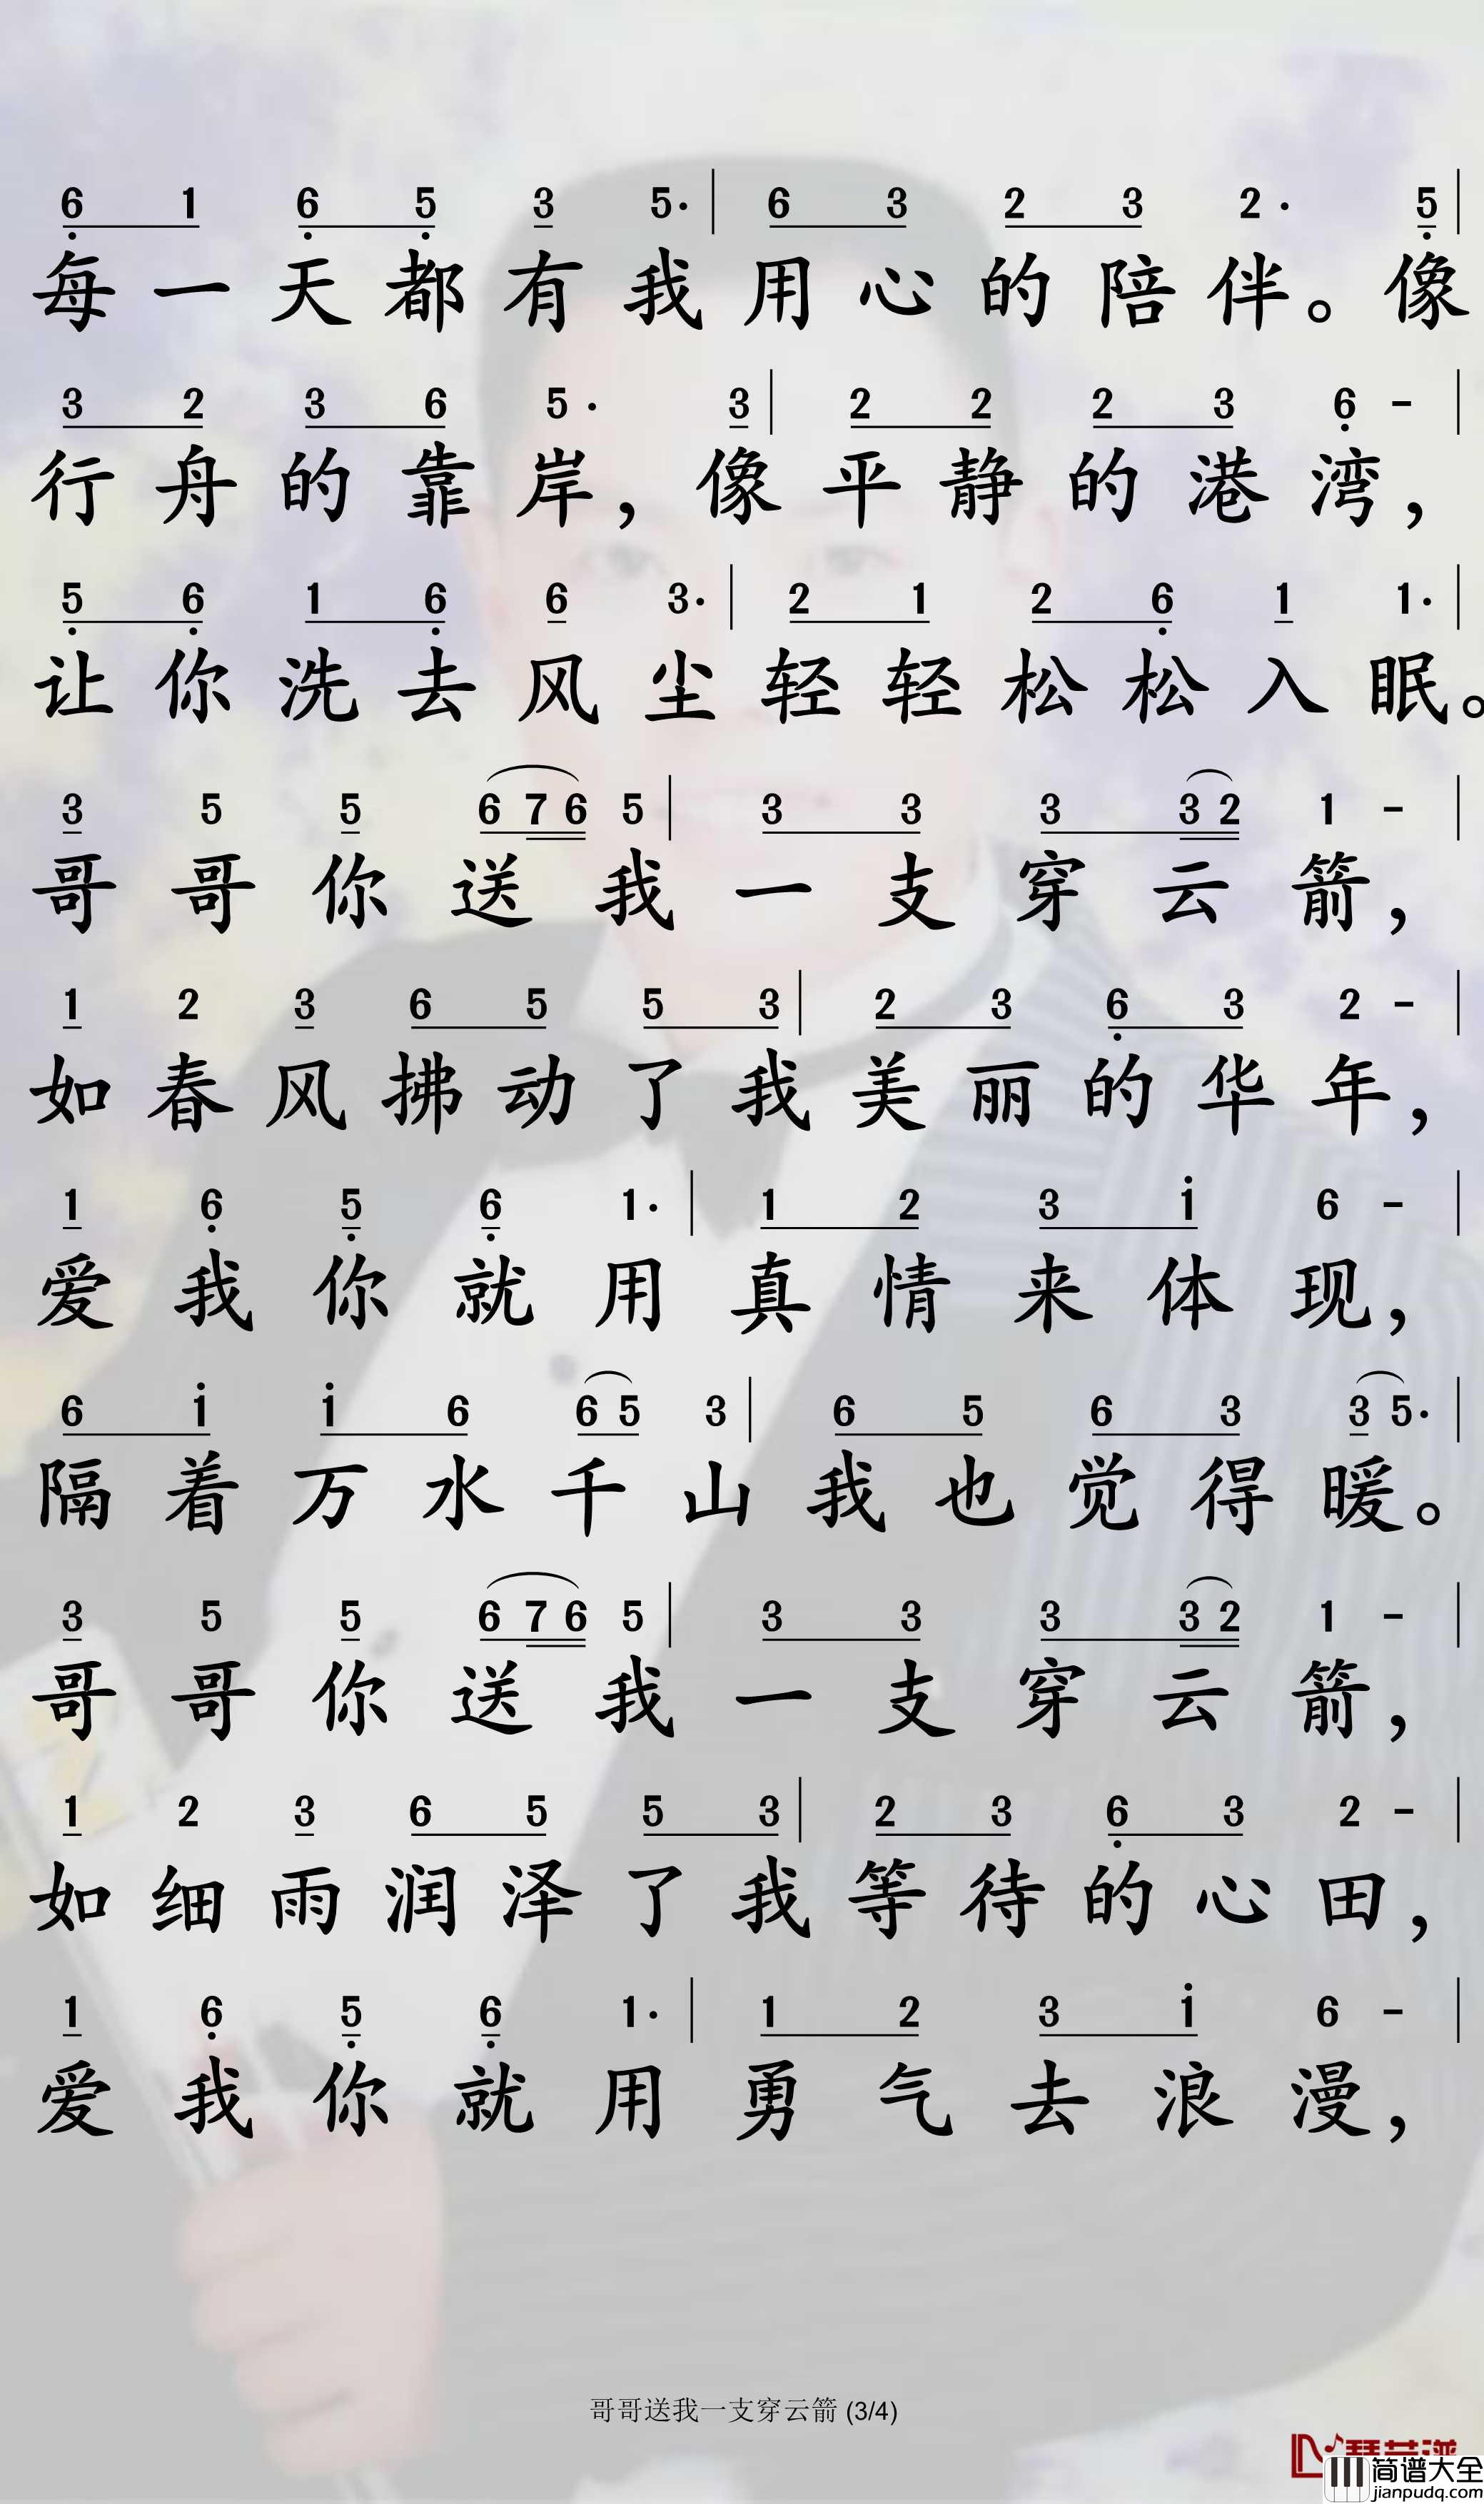 6 1 6 5 3 5· | 6 3 2 3 2· 5 |
每一天都有我用心的陪伴。像
3 2 3 6 5· 3 | 2 2 2 3 6 - |
行舟的靠岸，像平静的港湾，
5 6 1 6 6 3· | 2 1 2 6 1 1· |
让你洗去风尘轻轻松松入眠。
3 5 5 6 7 6 5 | 3 3 3 3 2 1 - |
哥哥你送我一支穿云箭，
1 2 3 6 5 5 3 | 2 3 6 3 2 - |
如春风拂动了我美丽的华年，
1 6 5 6 1· | 1 2 3 i 6 - |
爱我你就用真情来体现，
6 i i 6 6 5 3 | 6 5 6 3 3 5· |
隔着万水千山我也觉得暖。
3 5 5 6 7 6 5 | 3 3 3 3 2 1 - |
哥哥你送我一支穿云箭，
1 2 3 6 5 5 3 | 2 3 6 3 2 - |
如细雨润泽了我等待的心田，
1 6 5 6 1· | 1 2 3 i 6 - |
爱我你就用勇气去浪漫，
哥哥送我一支穿云箭 (3/4)
简谱大全
jianpudq.com